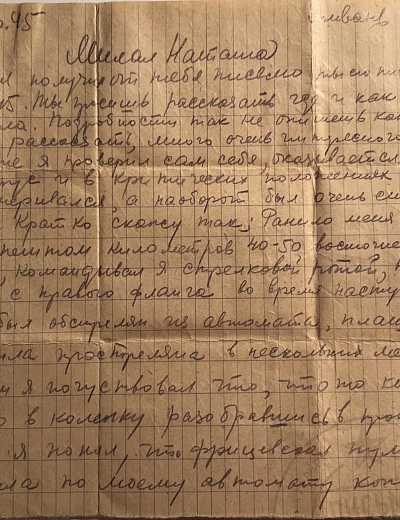 .45
Милая Наташа
получил от тебя письмо ты со
5. Ты просишь рассказать где и как
ла. Подробности так не опишешь ка
рассказать, много очень интересного
не я проверил сам себя, оказывается
ус и в критических положениях
еривался, а наоборот был очень
Кратко скажу так; Ранило меня
километров 40-50 восточне
, командывал я стрелковой ротой,
с правого фланга во время насту
был обстрелян из автомата, пла
ла прострелена в нескольких ме
я почуствовал что, что то
о в коленку разобравшись в
я понял, что фрицевская пул
ла по моему автомату